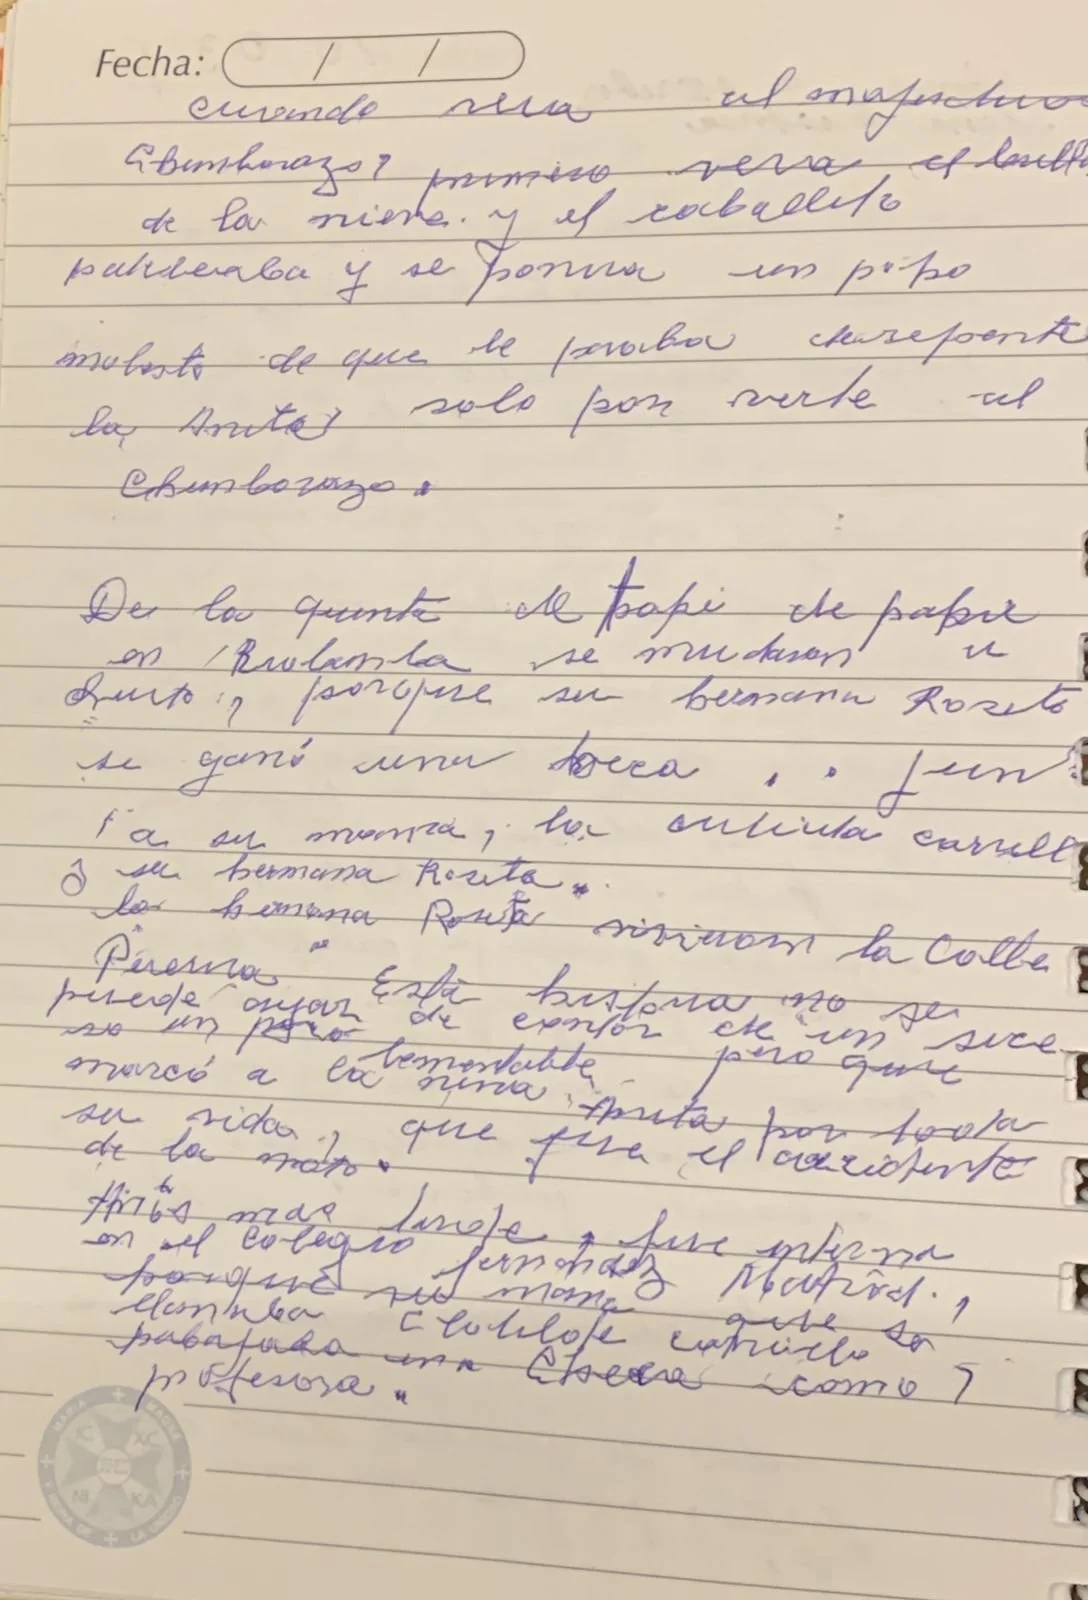 Fecha: / /
cuando veia al majestuoso
Chimborazo? primero veia el brillo
de la nieve. y el caballito
pateaba y se ponia un poko
molesto de que le paraba derepente
la Anita, solo por verte al
Chimborazo.
De la quinta del papi de papi
en Riobamba se mudaron a
Quito, porque su hermana Rosita
se ganó una beca. . Jun
ta a su mama, la
y su hermana Rosita.
la hermana Rosita vivieron la Calle
Esta historia no se
puede dejar de contar de un suce
so un poco lamentable pero que
marcó a la niña Anita por toda
su vida, que fue el accidente
de la moto.
Años mas tarde, fue interna
en el Colegio Fernández Madrid.,
porque su mama que se
llamaba Clotilde
trabajaba en como
profesora.
MARIA
C XC
NI KA